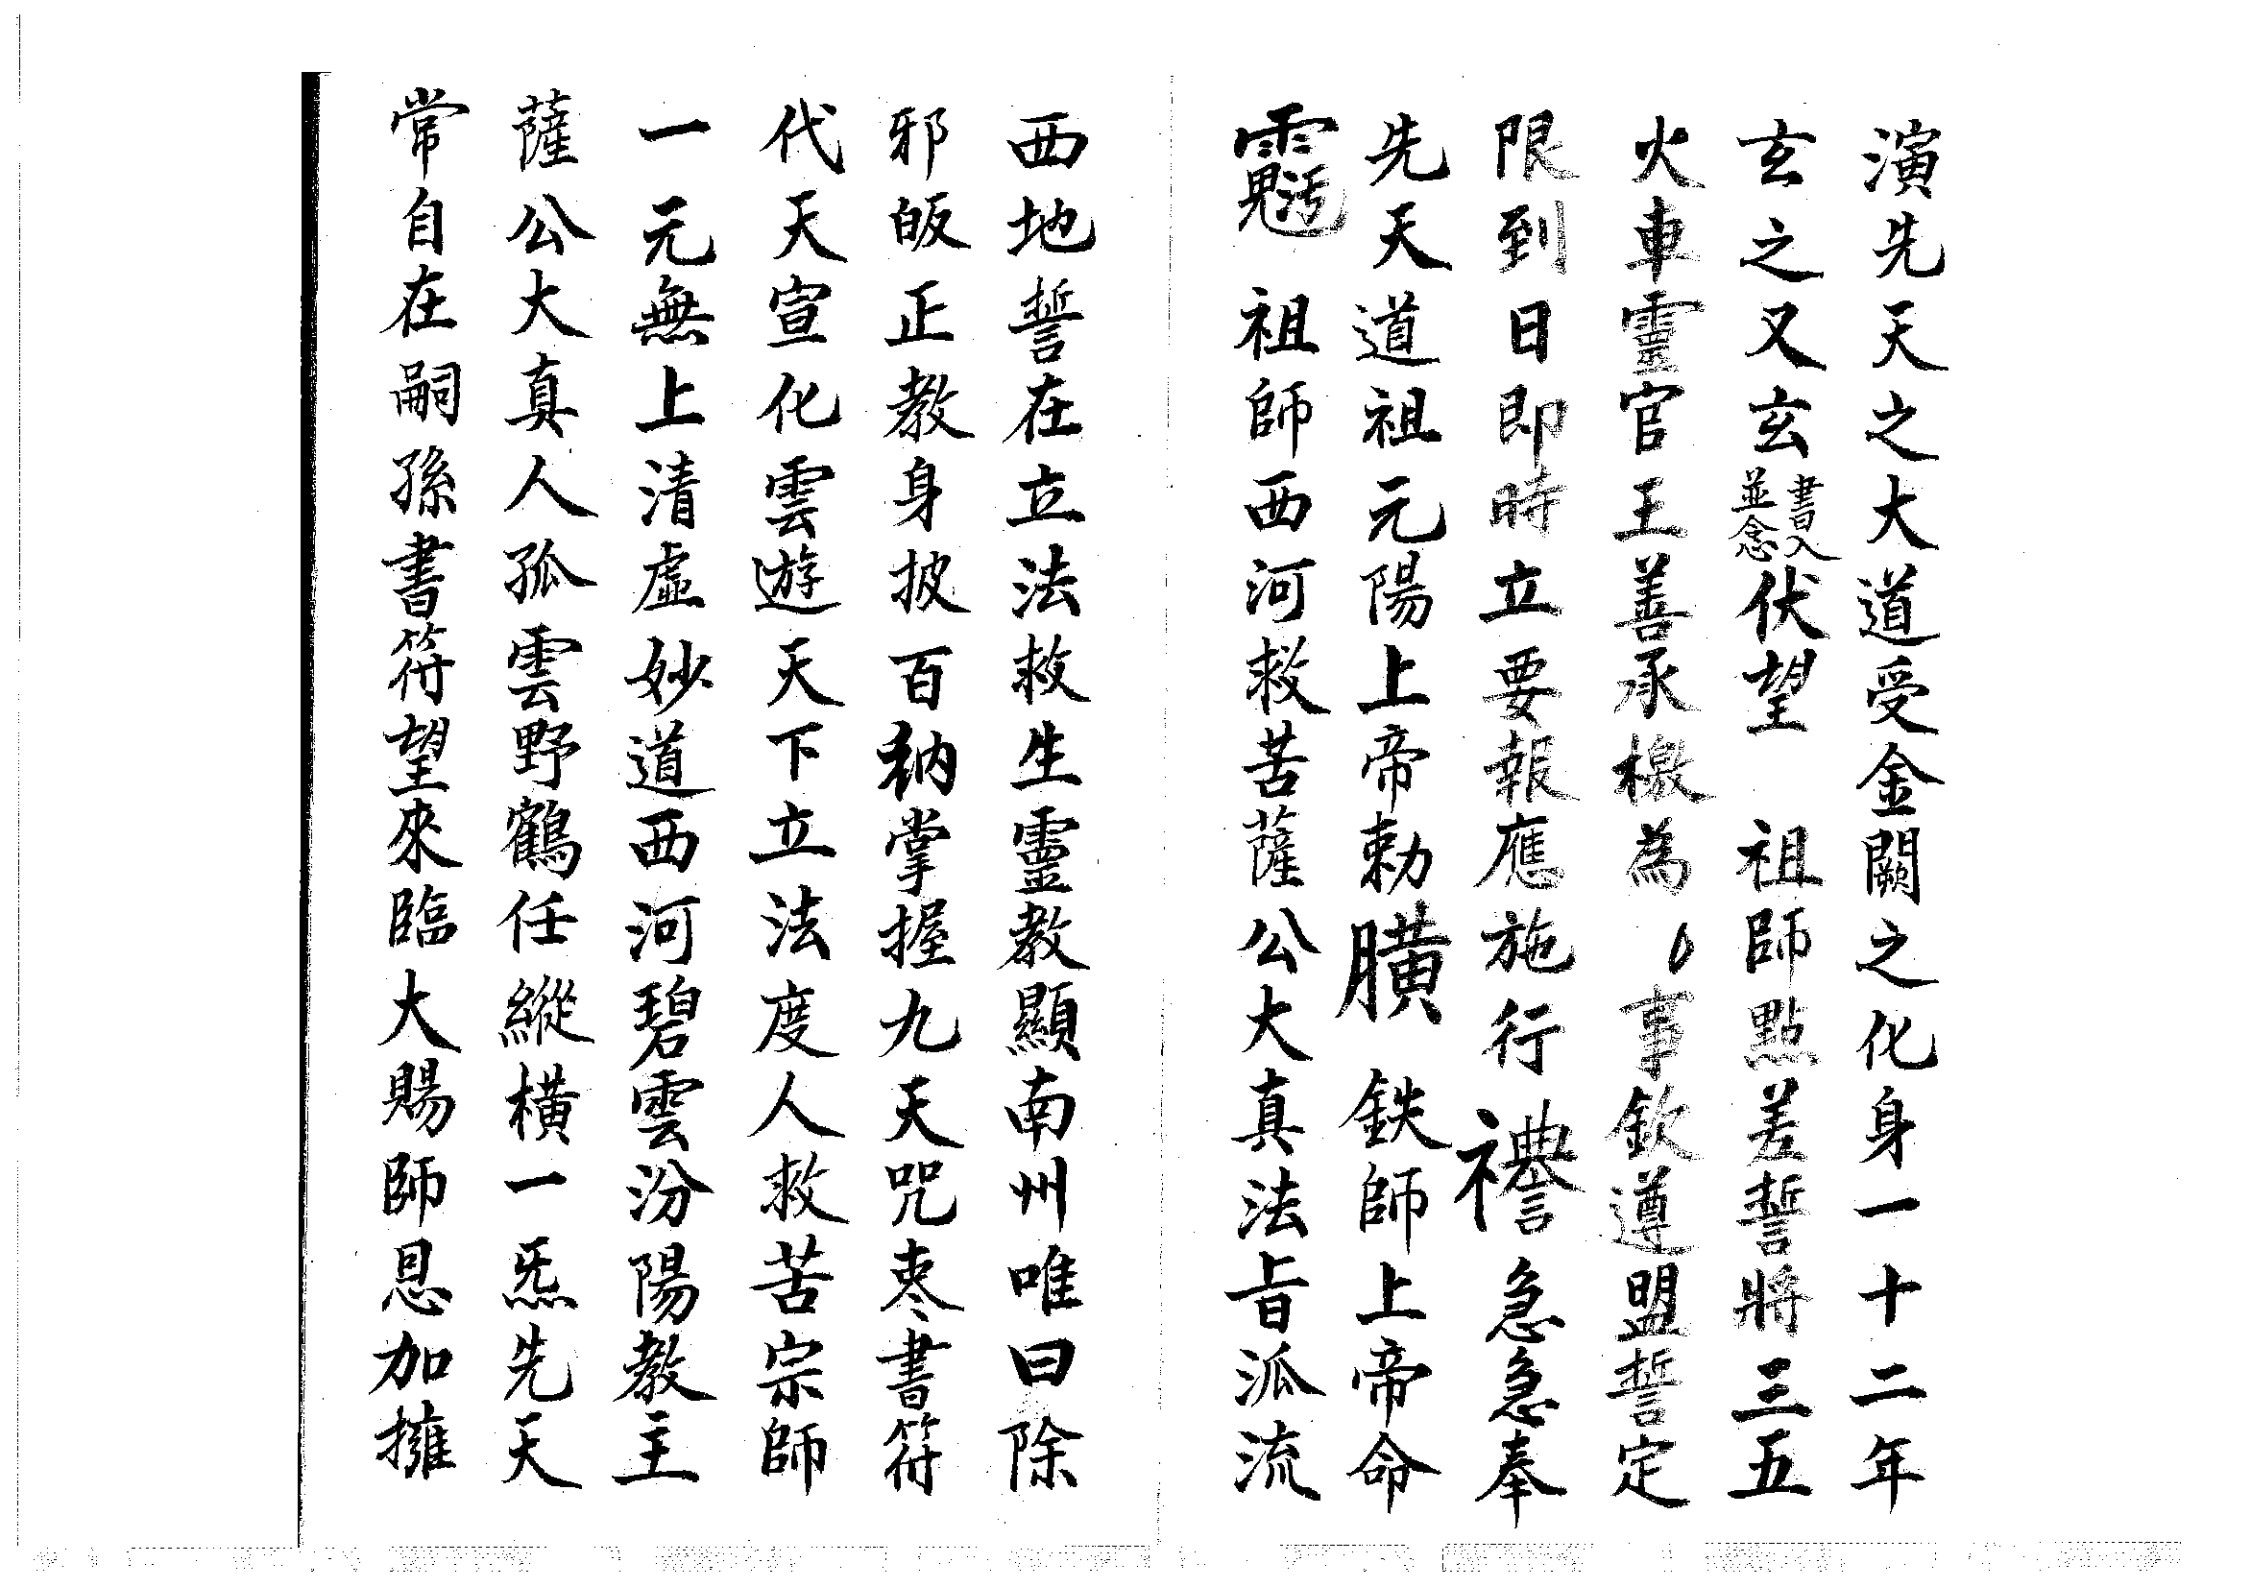 演先天之大道受金闕之化身一十二年
玄之又玄書入並念伏望 祖師點差誓將三五
火車靈官王善承檄為 事欽遵盟誓定
限到日即時立要報應施行 急急奉
先天道祖元陽上帝勅 鉄師上帝命
祖師西河救苦薩公大真法旨派流
西地誓在立法救生靈教顯南州唯曰除
邪皈正教身披百衲掌握九天咒枣書符
代天宣化雲遊天下立法度人救苦宗師
一元無上清虛妙道西河碧雲汾陽教主
薩公大真人孤雲野鶴任縱橫一炁先天
常自在嗣孫書符望來臨大賜師恩加擁